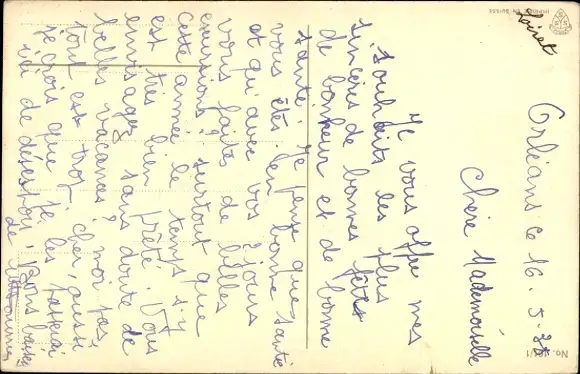 Loiret
Orléans ce 16-5-38
Chère Mademoiselle
Je vous offre mes
souhaits les plus
sincères de bonnes fêtes
de bonheur et de bonne
santé. Je pense que
vous êtes en bonne santé
et qu'avec vos jours
vous faites de belles
excursions, surtout que
cette année le temps s'y
est très bien prêté. Vous
envisagez sans doute de
belles vacances? moi pas,
tout est trop cher, aussi
je crois que je les passerai
ici de désespoir. Bons baisers
de
No.